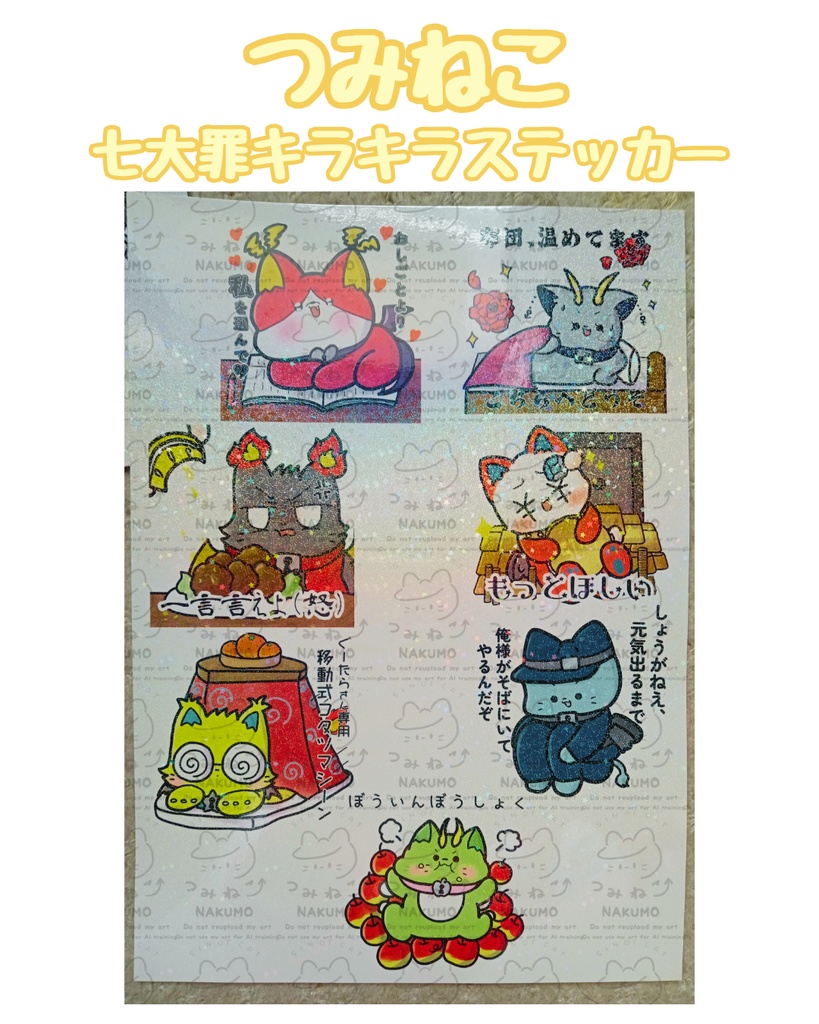 つみねこ
七大罪キラキラステッカー
おしごとより
私を選んで
布団、温めてます
こちらへどうぞ
一言言えよ(怒)
もっとほしい
しょうがねえ、
元気出るまで
俺様がそばにいて
やるんだぞ
ぐーたらさん専用
移動式コタツマシーン
ぼういんぼうしょく
つみねこ
NAKUMO
Do not reupload my art
Do not use my art for AI training